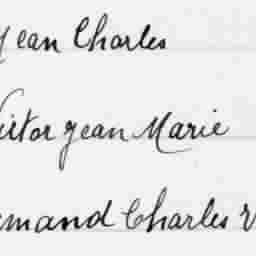 Jean Charles
Victor Jean Marie
Charles